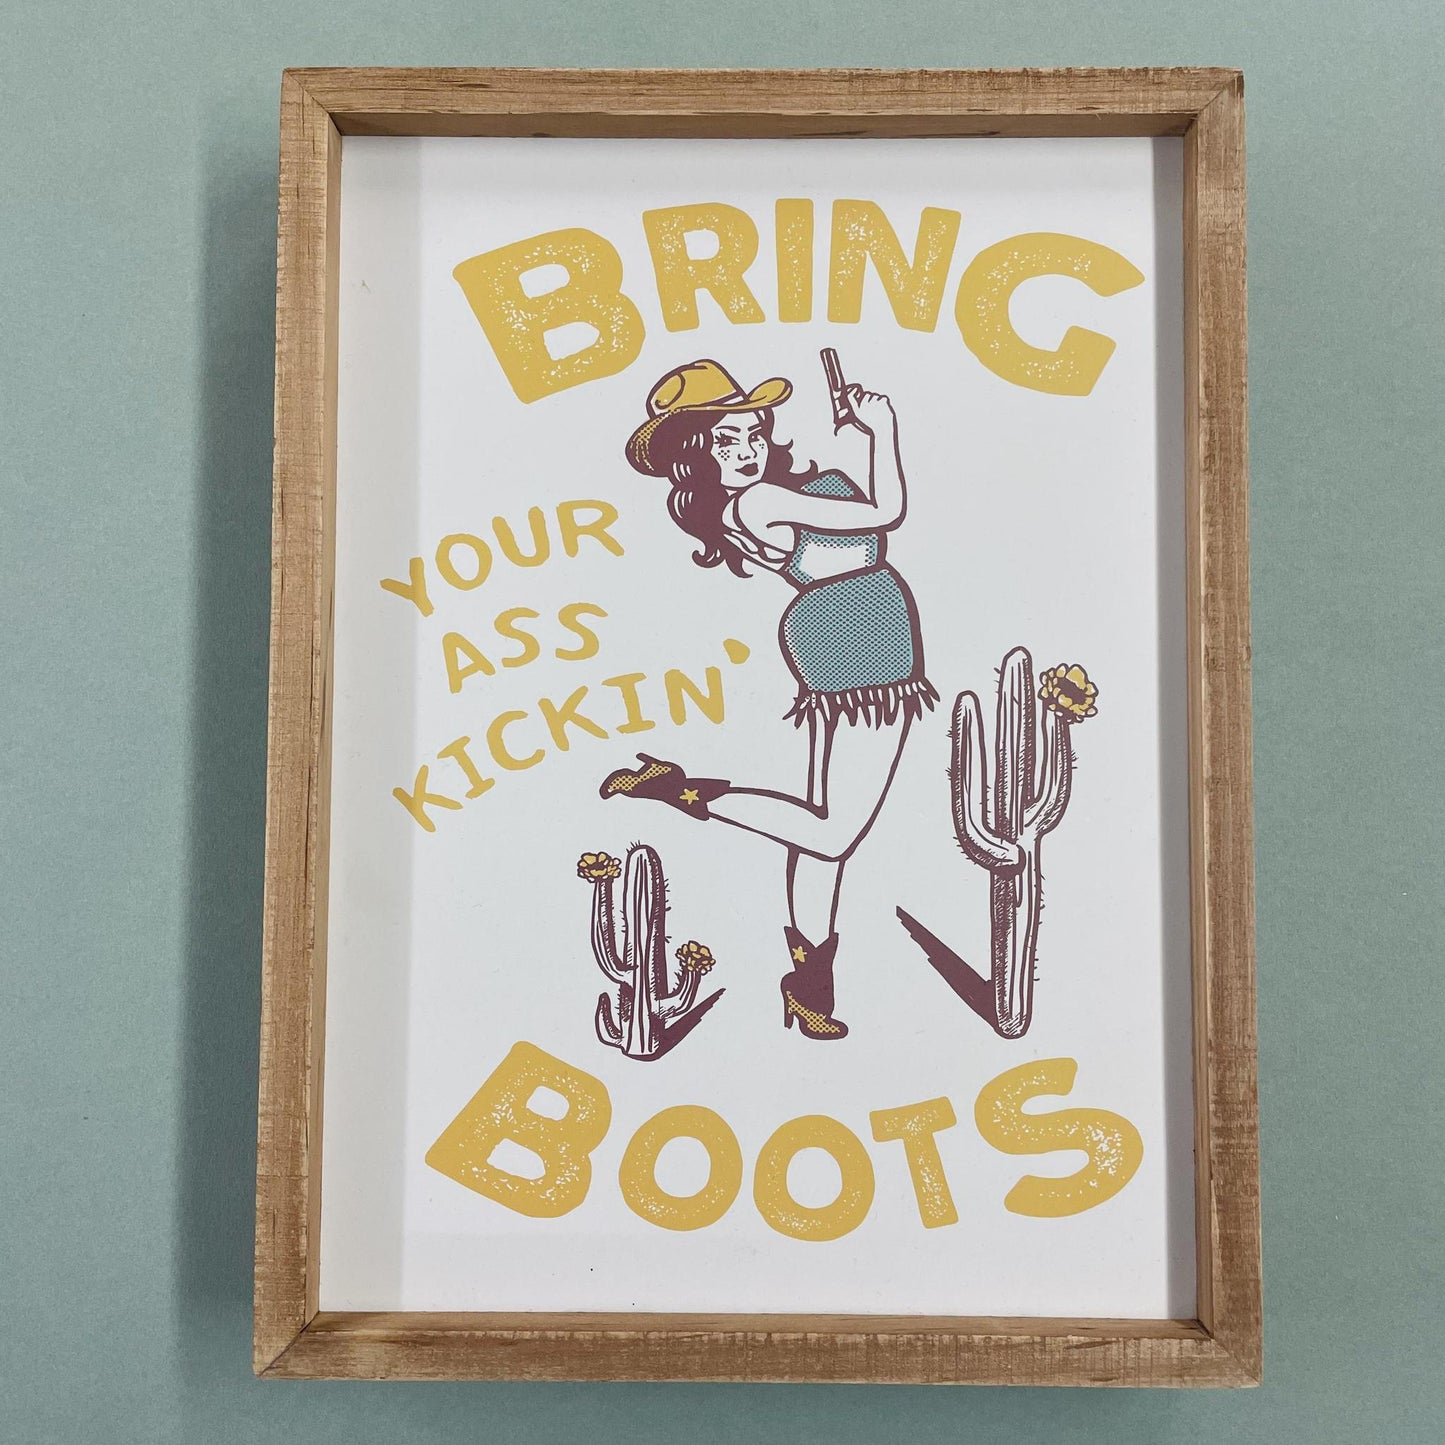 BRING
YOUR
ASS
KICKIN'
BOOTS